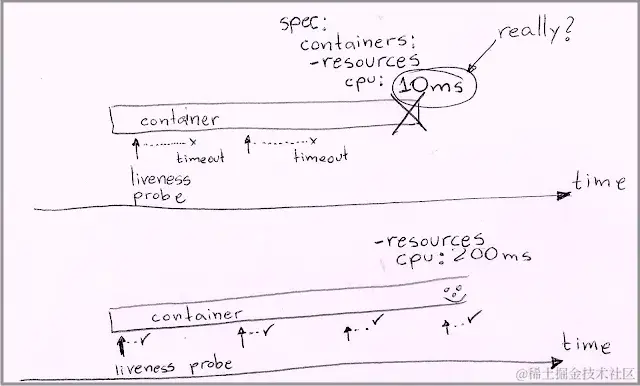 spec:
containers:
-resources
cpu: 10ms
really?
container
timeout
timeout
liveness
probe
time
-resources
cpu: 200ms
container
liveness probe
time
@稀土掘金技术社区